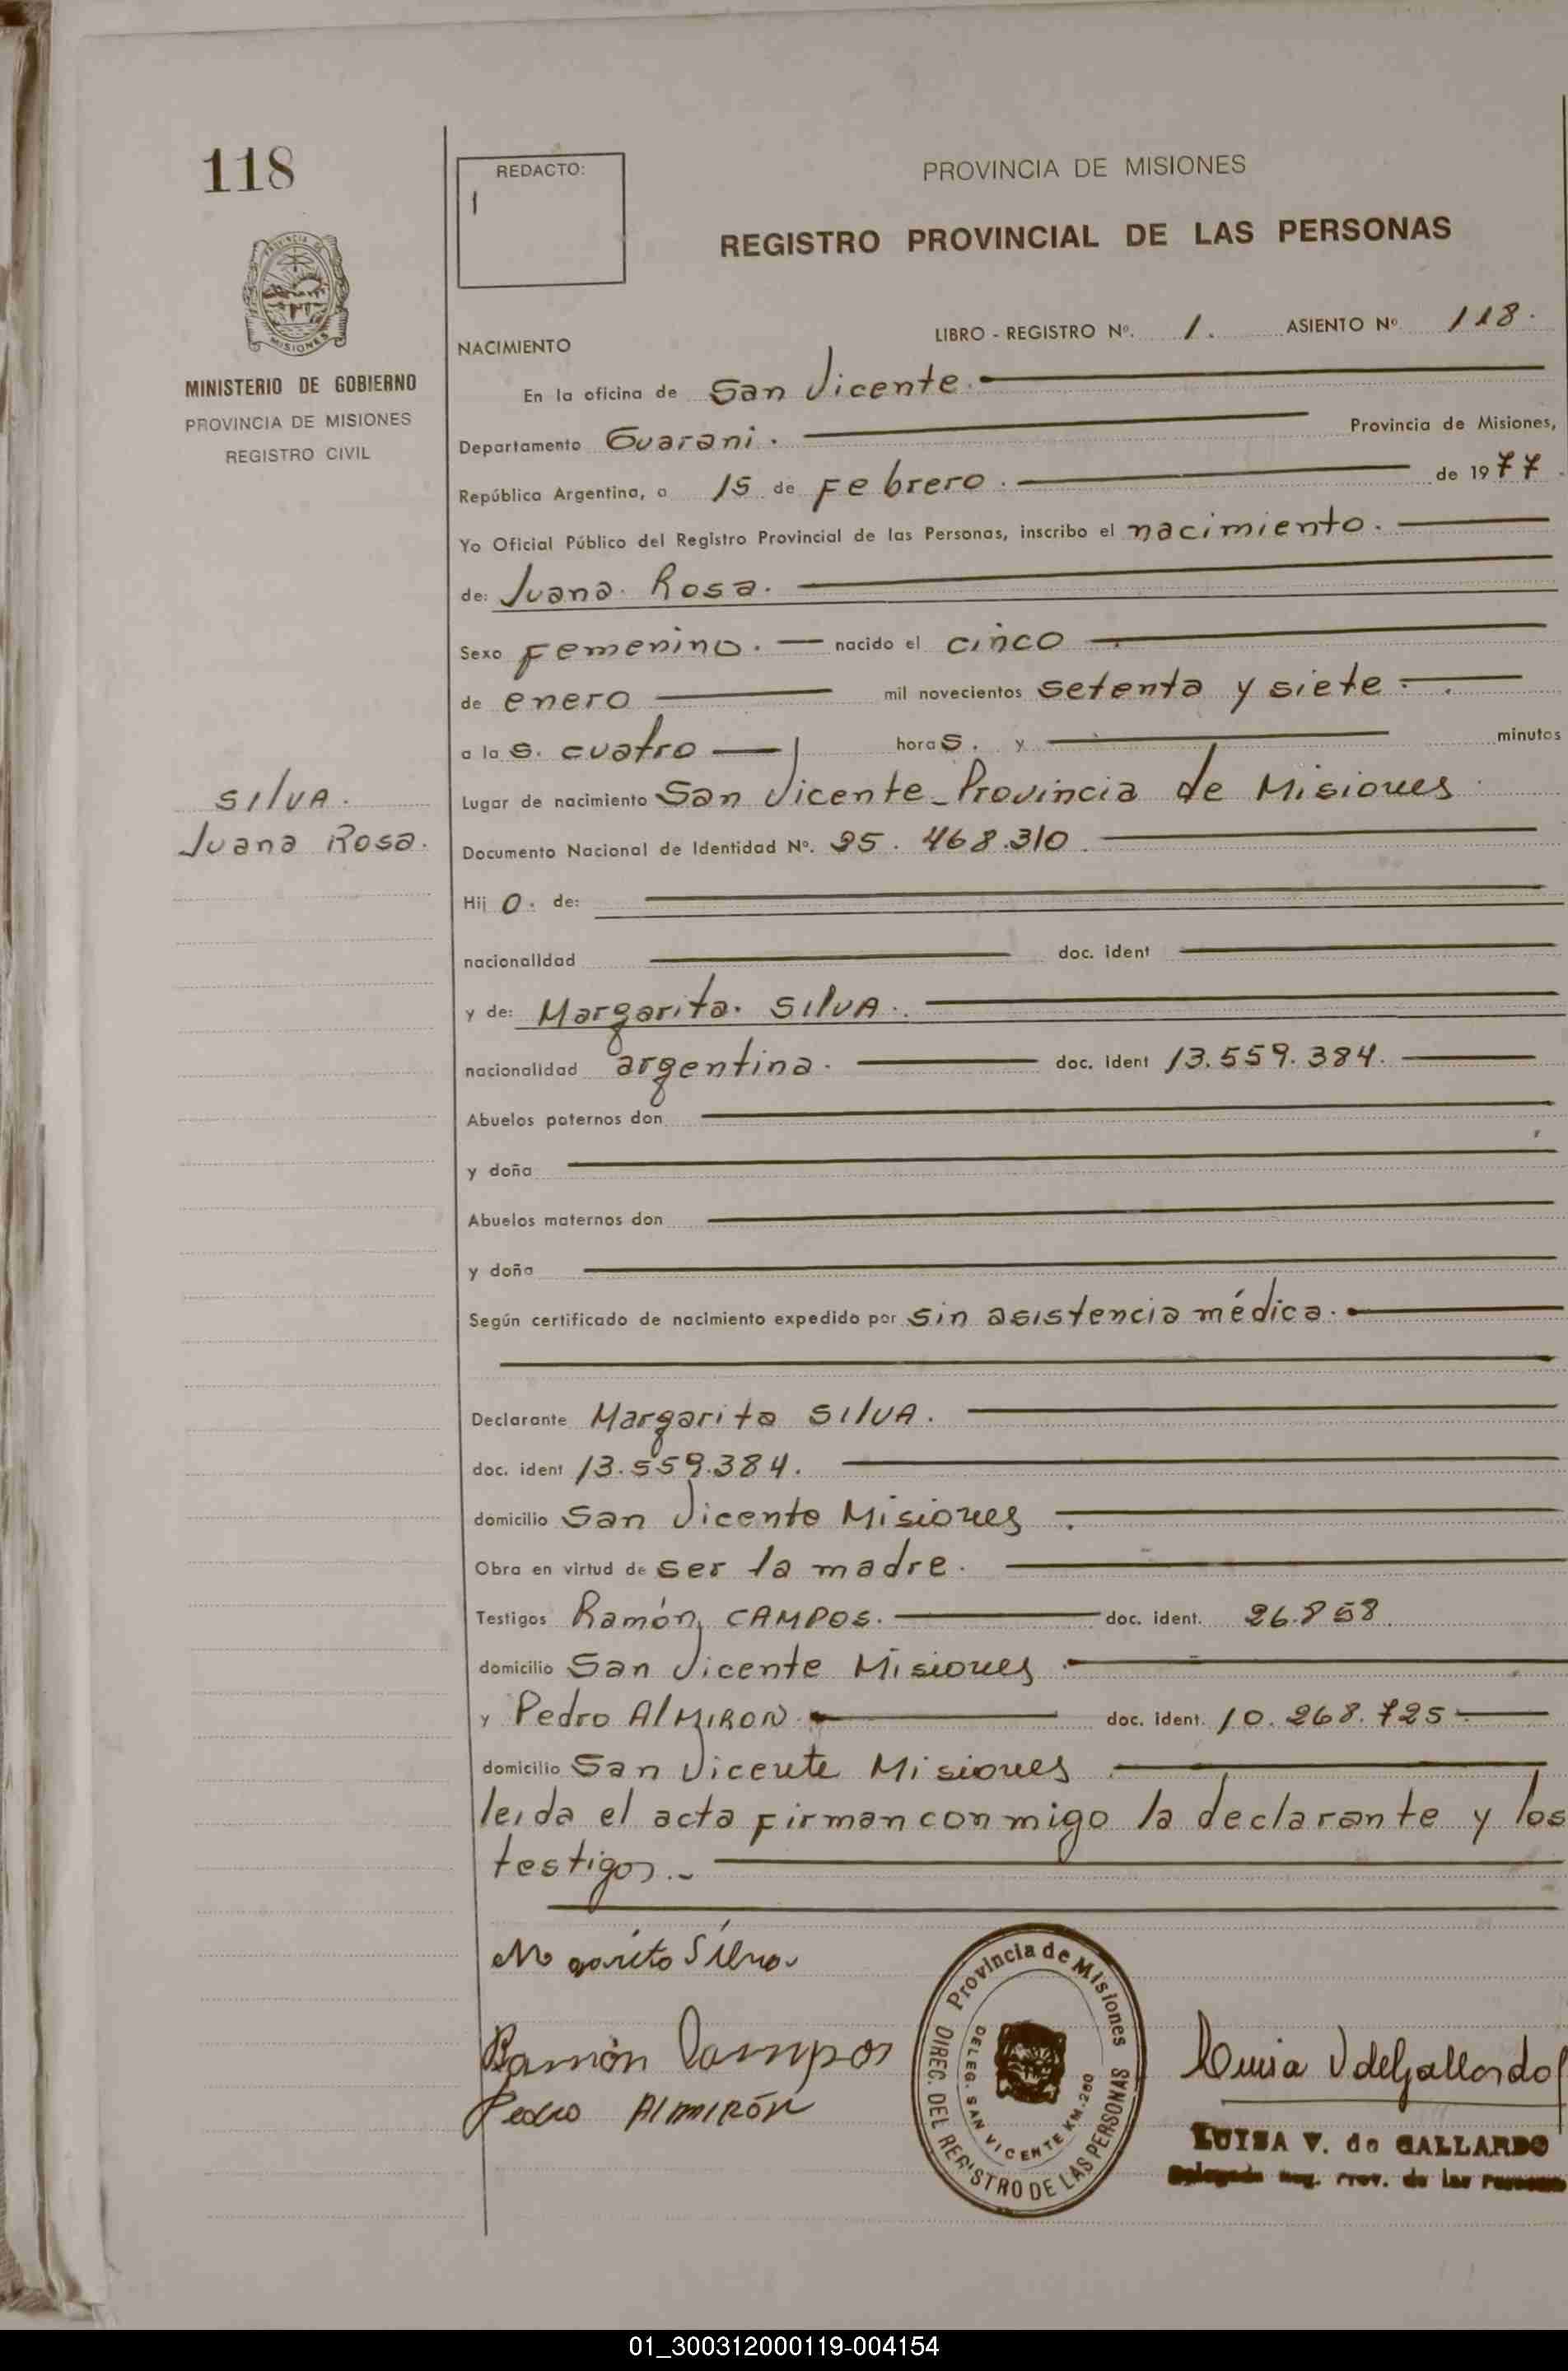 118
REDACTO:
1
PROVINCIA DE MISIONES
REGISTRO PROVINCIAL DE LAS PERSONAS
PROVINCIA DE
MISIONES
MINISTERIO DE GOBIERNO
PROVINCIA DE MISIONES
REGISTRO CIVIL
LIBRO - REGISTRO Nº. 1. ASIENTO Nº 118.
NACIMIENTO
En la oficina de San Vicente.
Departamento Guarani. Provincia de Misiones,
República Argentina, a 15 de Febrero. de 1977.
Yo Oficial Público del Registro Provincial de las Personas, inscribo el nacimiento.
de: Juana. Rosa.
Sexo Femenino. nacido el cinco
de enero mil novecientos setenta y siete.
a la s. cuatro horas. y minutos
SILVA.
Juana Rosa.
Lugar de nacimiento San Vicente_Provincia de Misiones.
Documento Nacional de Identidad Nº. 25.468.310.
Hij o. de:
nacionalidad doc. ident
y de: Margarita. SILVA.
nacionalidad argentina. doc. ident 13.559.384.
Abuelos paternos don
y doña
Abuelos maternos don
y doña
Según certificado de nacimiento expedido por sin asistencia médica.
Declarante Margarita SILVA.
doc. ident 13.559.384.
domicilio San Vicente Misiones.
Obra en virtud de ser la madre.
Testigos Ramón CAMPOS. doc. ident. 26.858
domicilio San Vicente Misiones.
y Pedro AlMIRON doc. ident. 10.268.725.
domicilio San Vicente Misiones
leida el acta firman conmigo la declarante y los
testigos.-
Margarito Silva
Ramón Campos
Pedro AlmIRÓN
Provincia de Misiones
DIREC. DEL REGISTRO DE LAS PERSONAS
DELEG. SAN VICENTE KM.280
Luisa V de Gallardo
LUISA V. de GALLARDO
Delegada Reg. Prov. de las Personas
01_300312000119-004154